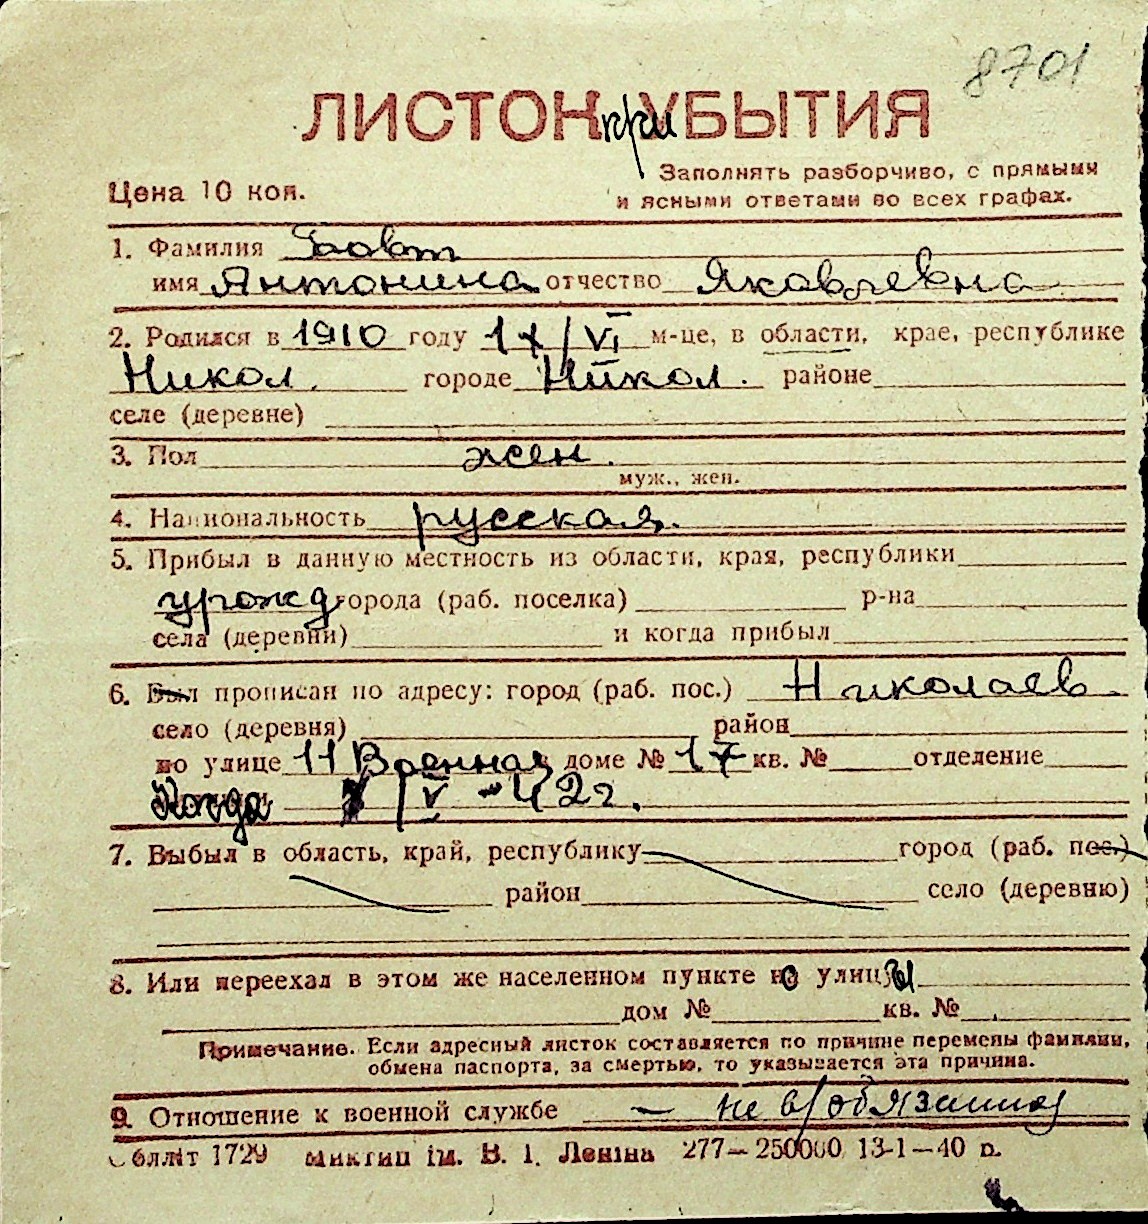 8701
ЛИСТОК при УБЫТИЯ
Цена 10 коп.
Заполнять разборчиво, с прямыми
и ясными ответами во всех графах.
1. Фамилия Бовт
имя Антонина отчество Яковлевна
2. Родился в 1910 году 17/VI м-це, в области, крае, республике
Никол. городе Никол. районе
селе (деревне)
3. Пол жен.
муж., жен.
4. Национальность русская.
5. Прибыл в данную местность из области, края, республики
урожд города (раб. поселка) р-на
села (деревни) и когда прибыл
6. Был прописан по адресу: город (раб. пос.) Николаев
село (деревня) район
по улице 11 Военная доме № 17 кв. № отделение
Когда /V-42г.
7. Выбыл в область, край, республику город (раб. пос.)
район село (деревню)
8. Или переехал в этом же населенном пункте но улицы
дом № кв. №
Примечание. Если адресный листок составляется по причине перемены фамилии,
обмена паспорта, за смертью, то указывается эта причина.
9. Отношение к военной службе — не в/обязанная
Обллiт 1729 iм. В. I. Ленiна 277—250000 13-1—40 р.